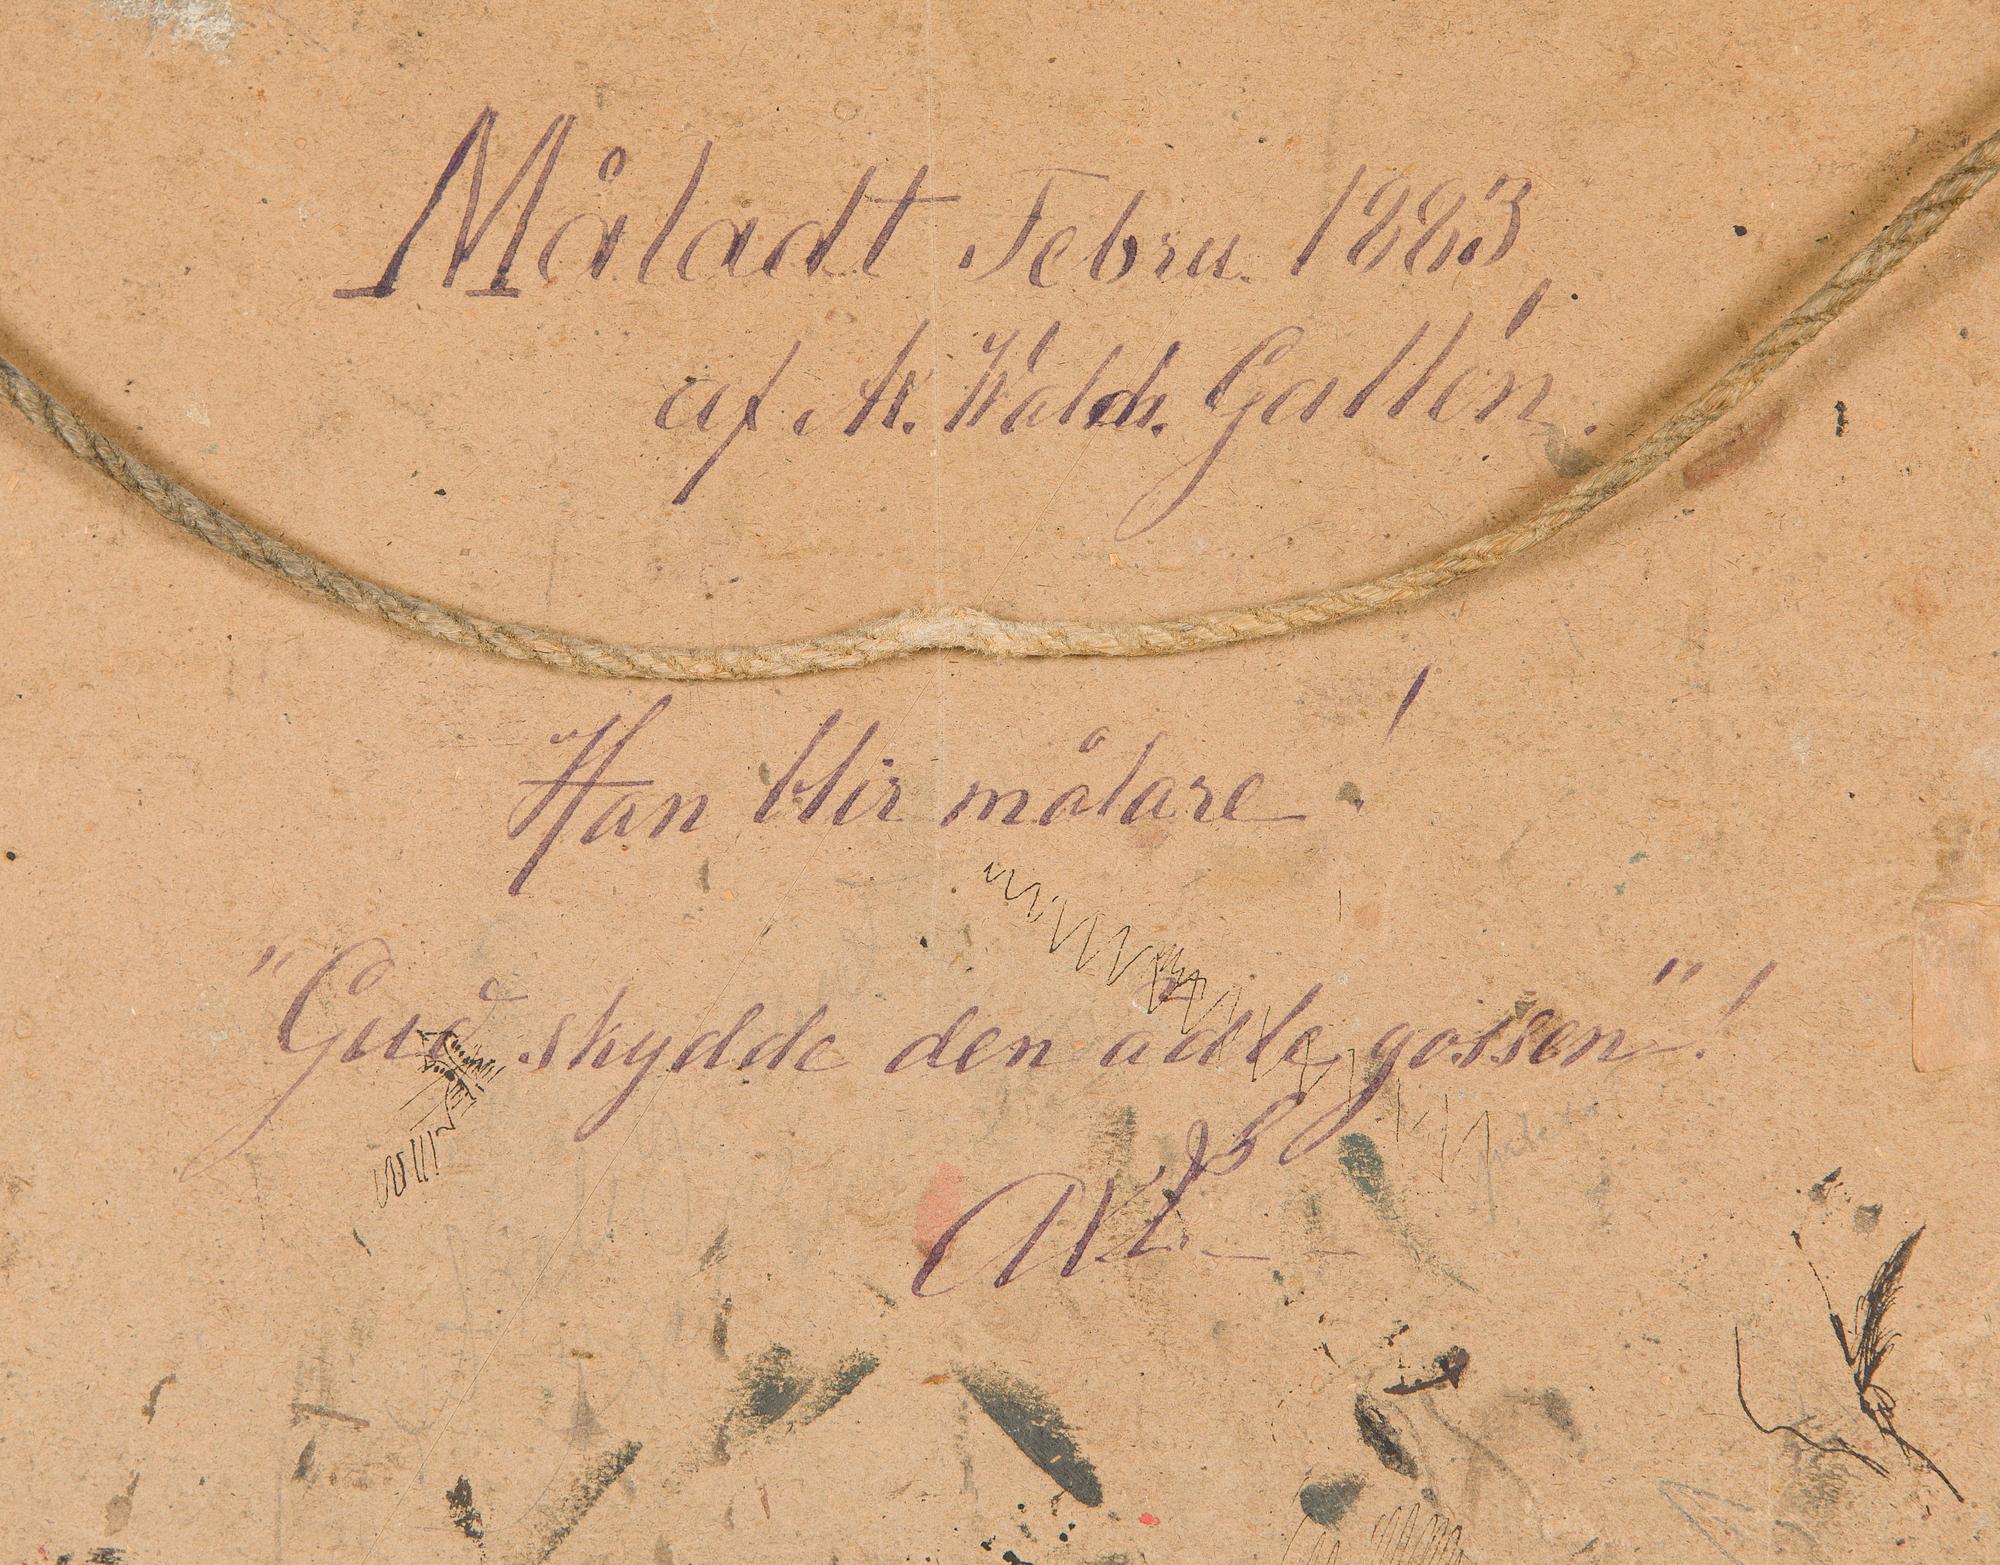 Måladt Febru. 1883,
af Ax. Wald. Gallén.
Han blir målare!
"Gud skydde den ädle gossen"!